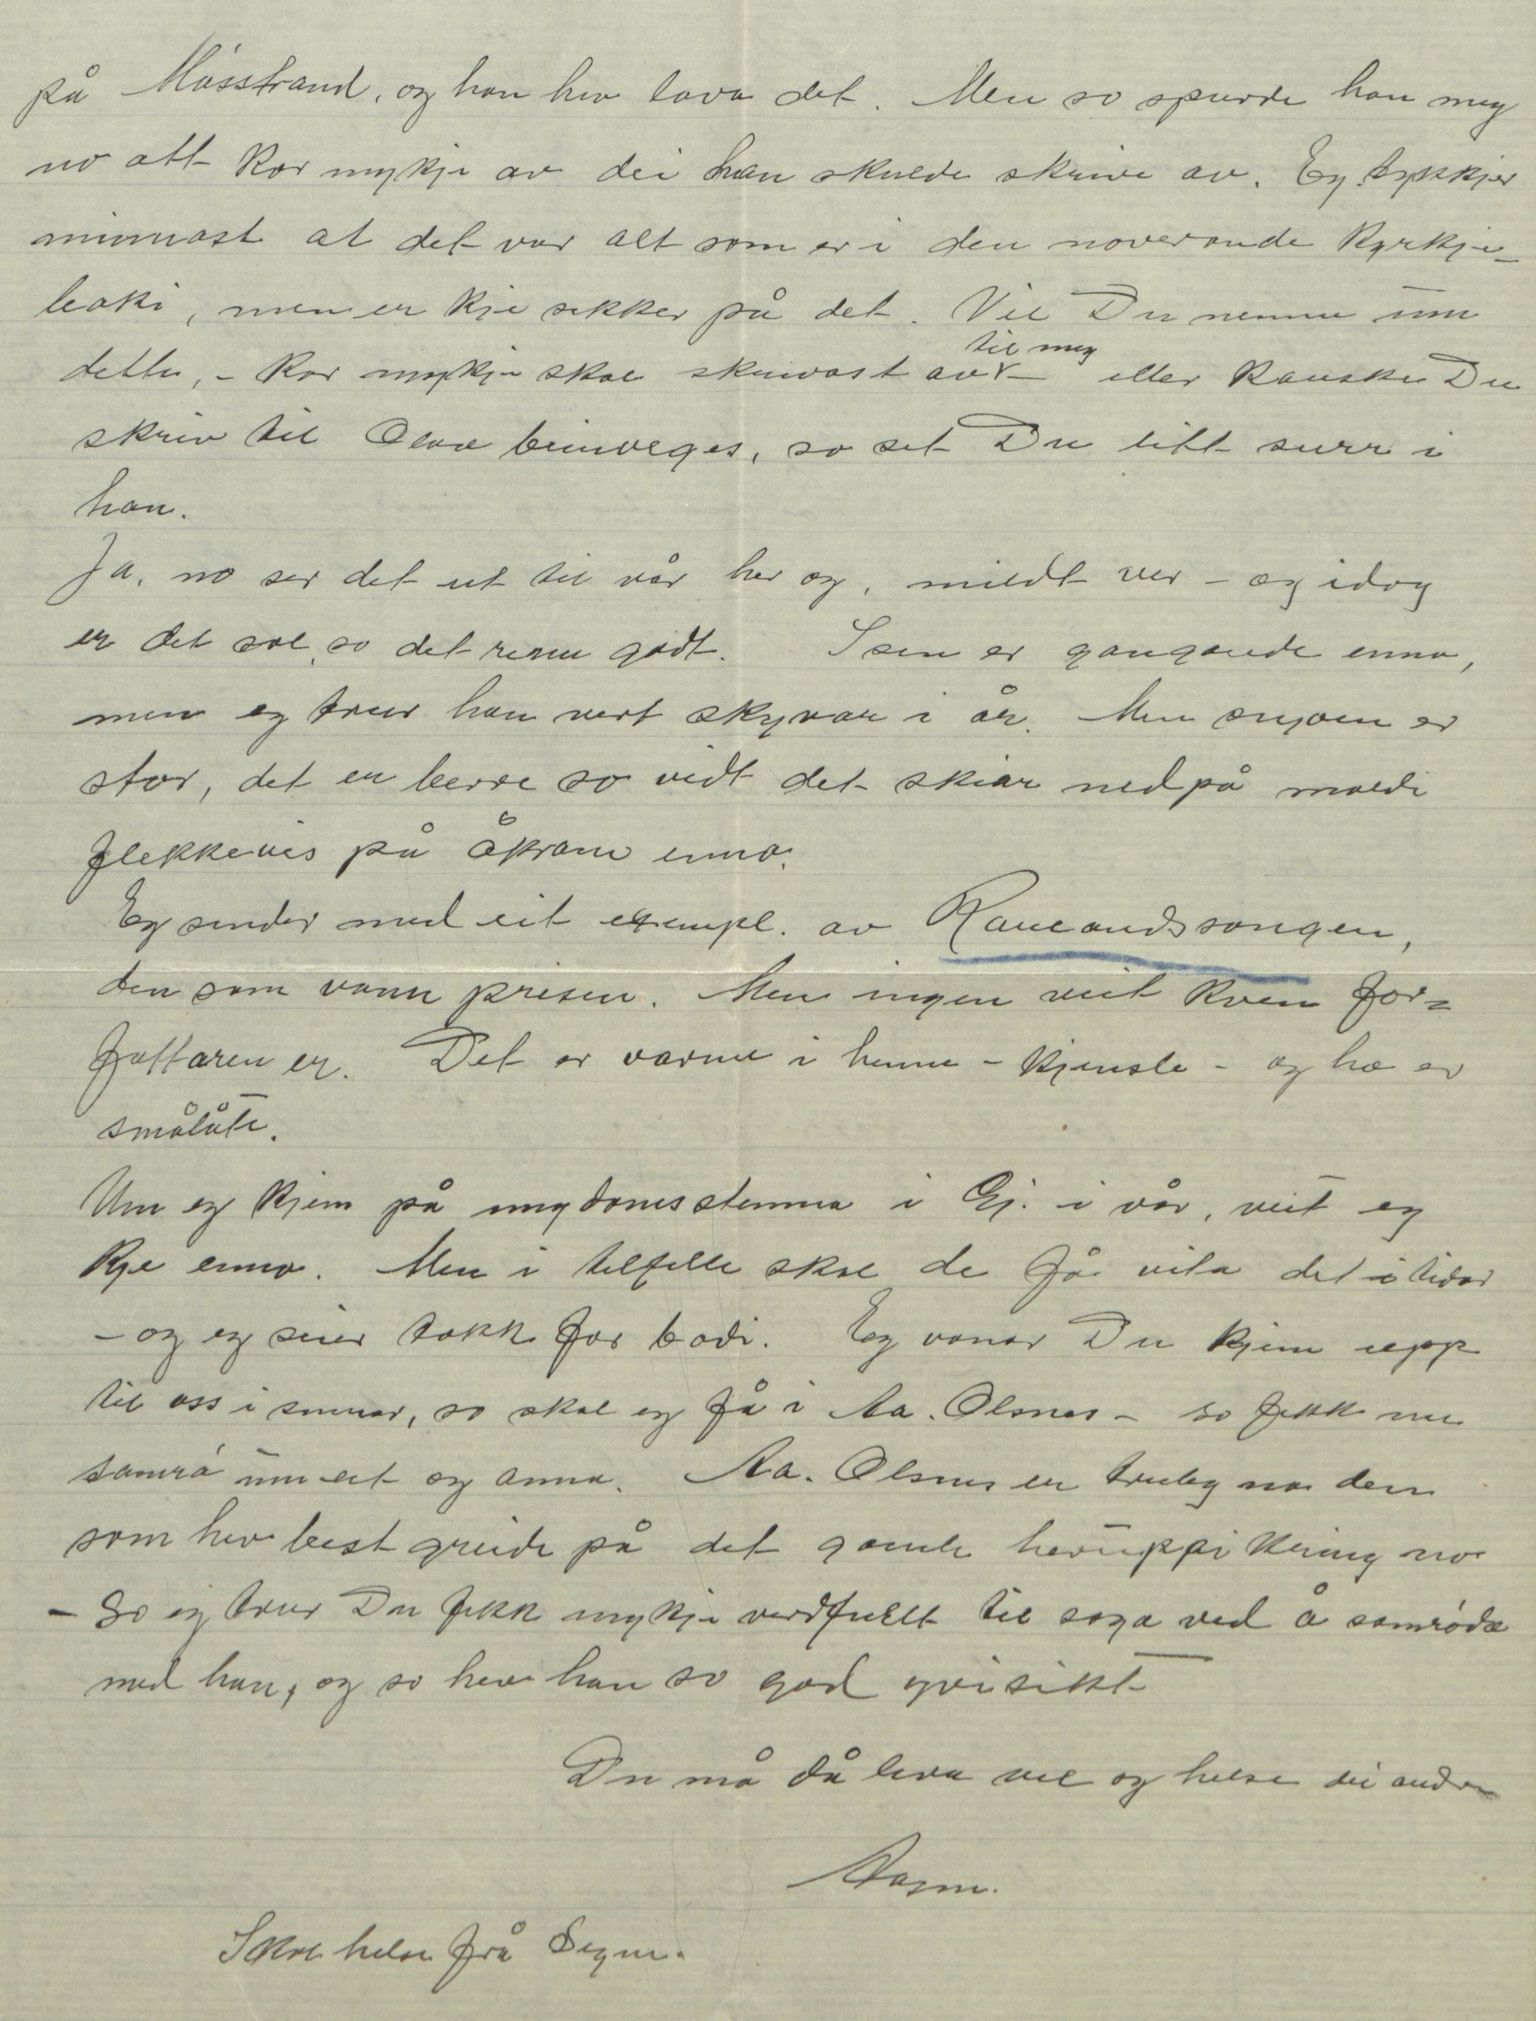 på Møsstrand, og han hev lova det. Men so spurde han meg
no att kor mykje av dei han skulde skrive av. Eg tykkjer
minnast at det var alt som er i den noverande kyrkje-
boki, men er kje sikker på det. Vil Du nemne um
dette, - kor mykje skal skrivast av - til meg eller kanske Du
skriv til Olav beinveges, so set Du litt surr i
han.
Ja, no ser det ut til vår her og, mildt ver - og idag
er det sol, so det renn godt. Isen er gangande enno,
men eg trur han vert skyvar i år. Men snjoen er
stor, det er berre so vidt det skiar ned på moldi
flekkevis på åkrane enno.
Eg sender med eit exempl. av Raulandssongen,
den som vann prisen. Men ingen veit kven for=
fattaren er. Det er varme i henne - kjensle - og ho er
smålåti.
Um eg kjem på ungdomsstemna i Gj. i vår, veit eg
kje enno. Men i tilfelle skal de få vita det i tidar
- og eg seier takk for bodi. Eg vonar Du kjem upp
til oss i sumar, so skal eg få i Aa. Olsnes - so fekk me
samrå um eit og anna. Aa. Olsnes er truleg no den
som hev best greide på det gamle heruppi kring no
- So eg trur Du fekk mykje verdfullt til soga ved å samrøda
med han, og so hev han so god yvisikt
Du må då leva vel og helse dei andre
Aasm.
Skal helse frå Signe.